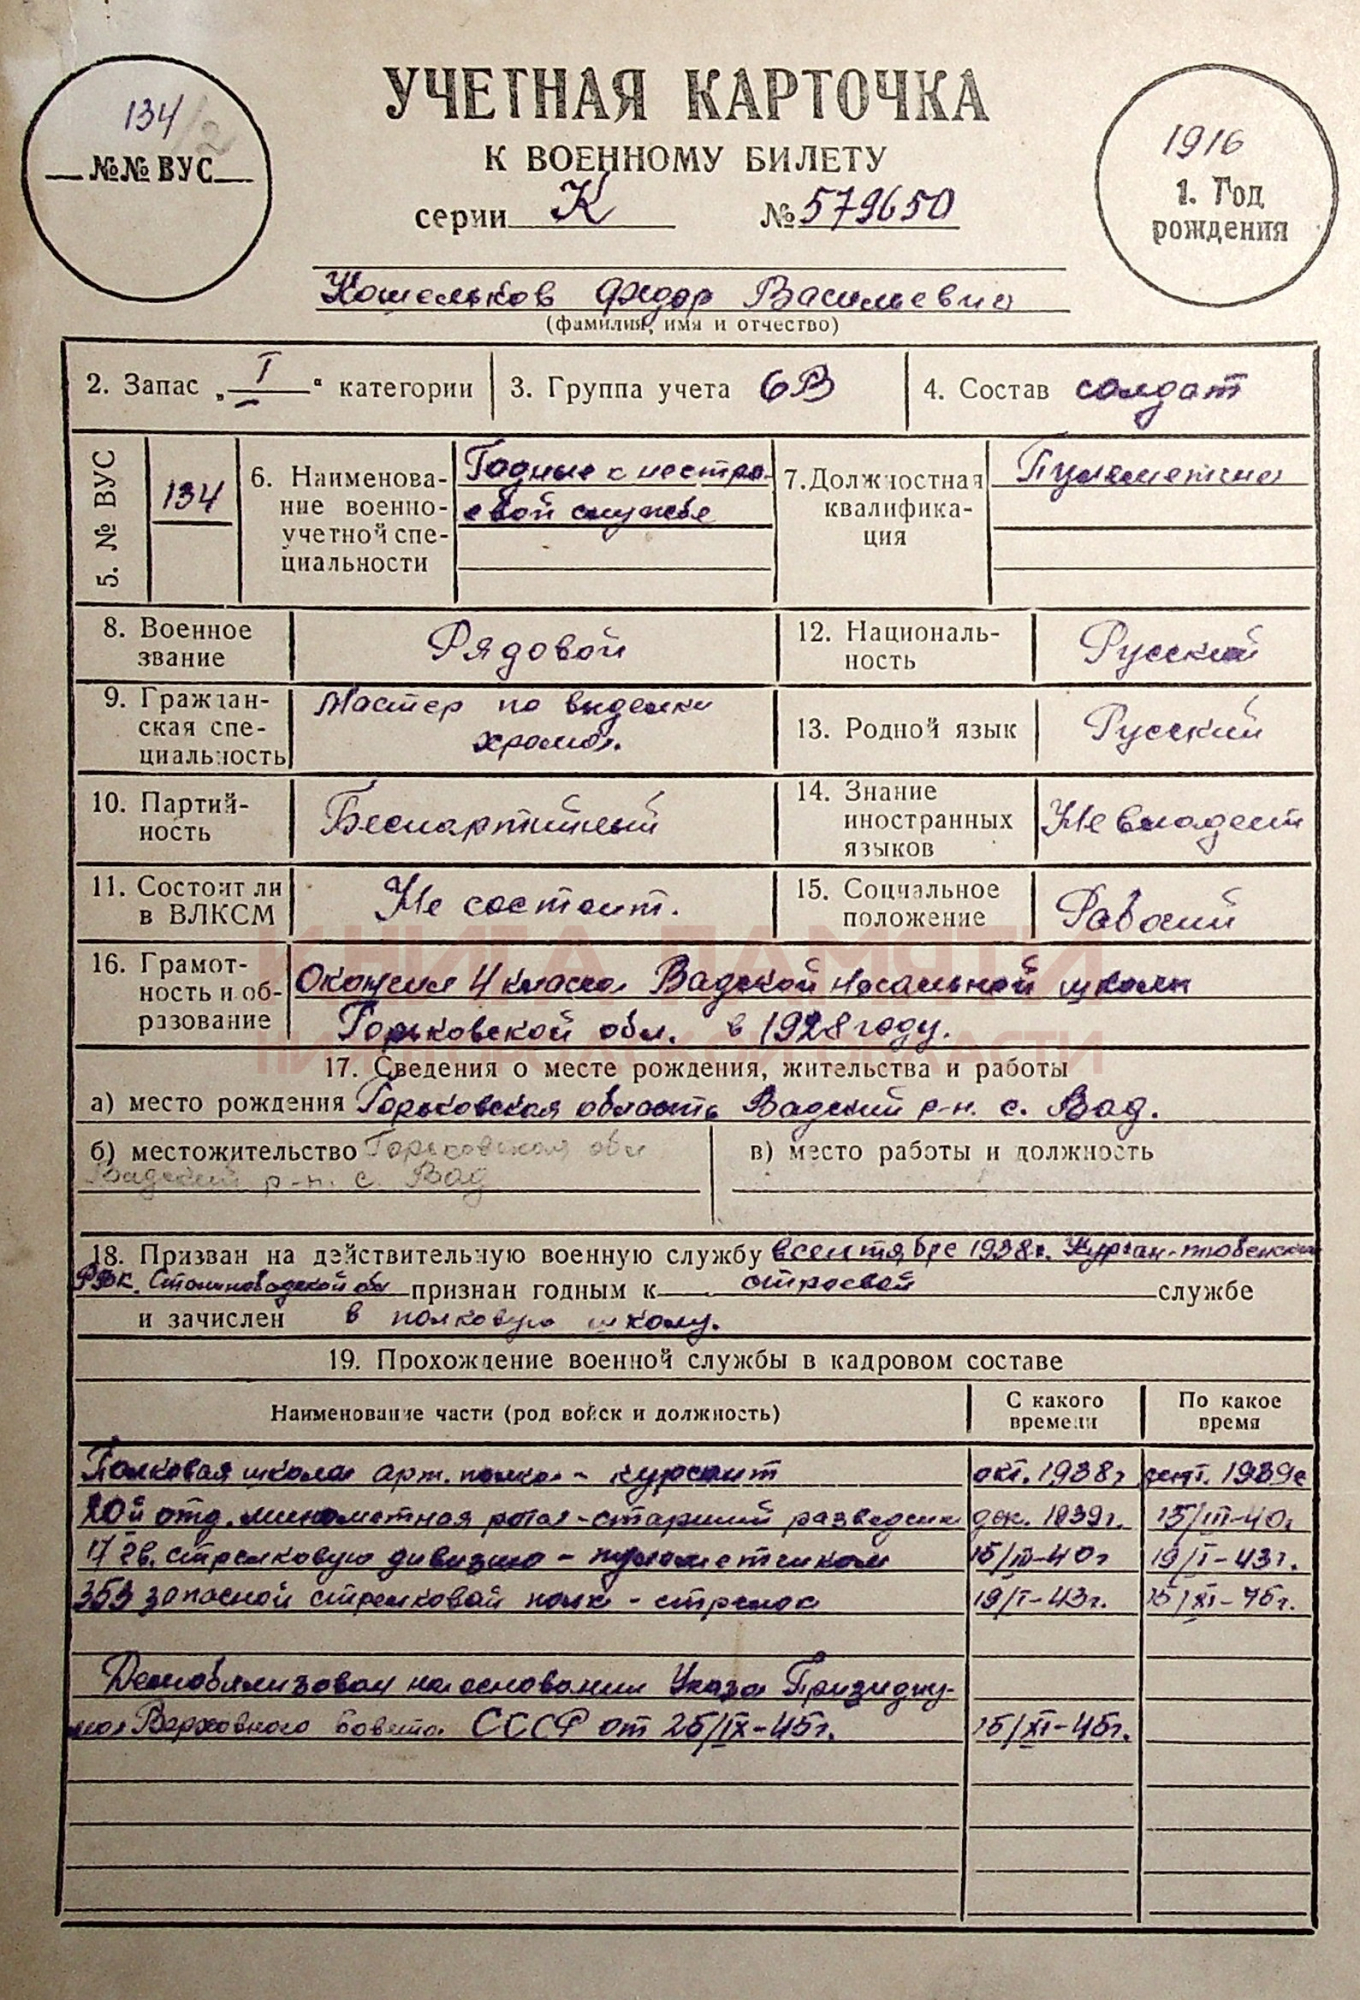 УЧЕТНАЯ КАРТОЧКА
К ВОЕННОМУ БИЛЕТУ
серии К № 579650
134/2
№№ ВУС
1916
1. Год
рождения
Кошельков Федор Васильевич
(фамилия, имя и отчество)
2. Запас „ I “ категории
3. Группа учета 6В
4. Состав солдат
5. № ВУС
134
6. Наименова-
ние военно-
учетной спе-
циальности
Годные к нестро-
евой службе
7. Должностная
квалифика-
ция
Пулеметчик
8. Военное
звание
Рядовой
12. Националь-
ность
Русский
9. Граждан-
ская спе-
циальность
Мастер по выделки
хрома.
13. Родной язык
Русский
10. Партий-
ность
Беспартийный
14. Знание
иностранных
языков
Не владеет
11. Состоит ли
в ВЛКСМ
Не состоит.
15. Социальное
положение
Рабочий
16. Грамот-
ность и об-
разование
Окончил 4 класса Вадской начальной школы
Горьковской обл. в 1928 году.
КНИГА ПАМЯТИ
НИЖЕГОРОДСКОЙ ОБЛАСТИ
17. Сведения о месте рождения, жительства и работы
а) место рождения Горьковская область Вадский р-н. с. Вад.
б) местожительство Горьковская обл
Вадский р-н. с. Вад
в) место работы и должность
18. Призван на действительную военную службу в сентябре 1938г. Курган-тюбенским
РВК. Сталинобадской обл признан годным к строевой службе
и зачислен в полковую школу.
19. Прохождение военной службы в кадровом составе
Наименование части (род войск и должность)
С какого
времени
По какое
время
Полковая школа арт. полка - курсант окт. 1938г 1939г
20й отд. минометная рота - старший разведчик дек. 1939г. 15/III-40г
17 гв. стрелковую дивизию - пулеметчиком 15/III-40г 19/I-43г.
353 запасной стрелковой полк - стрелок 19/I-43г. 15/XI-45г.
Демобилизован на основании Указа Президиу-
ма Верховного Совета СССР от 25/IX-45г. 15/XI-45г.